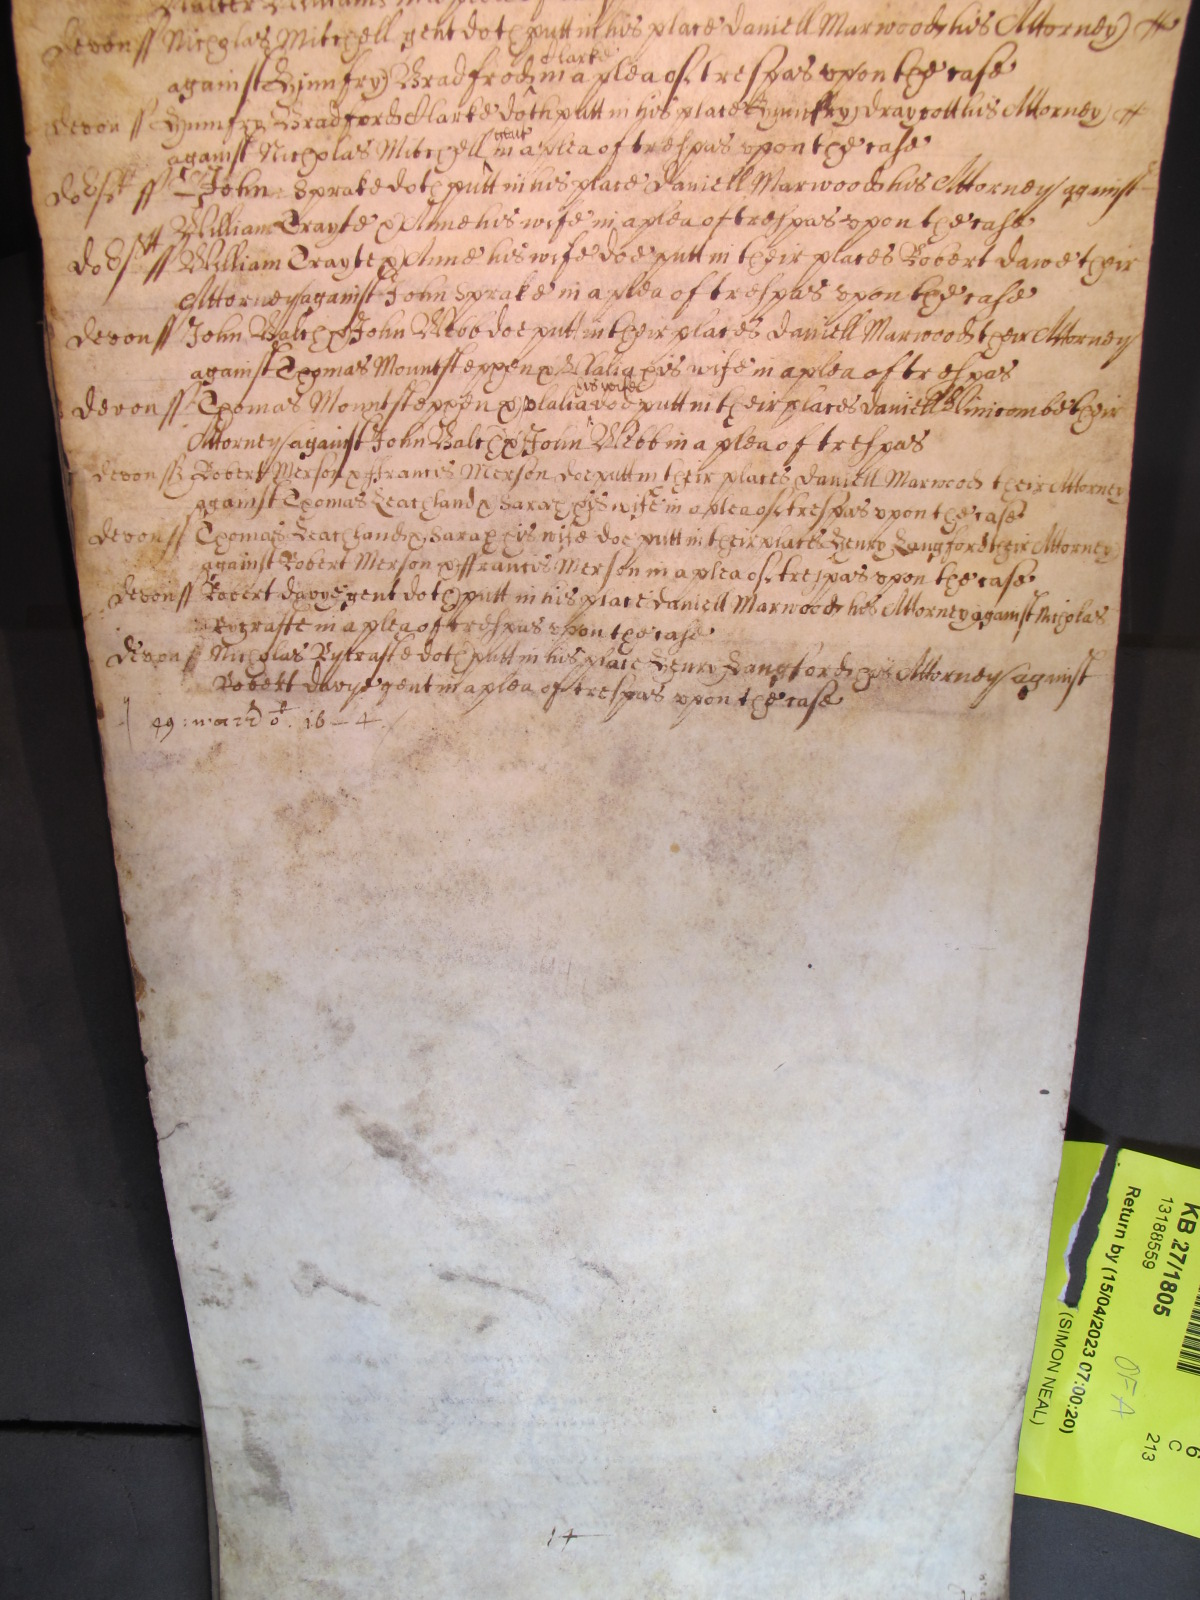 Walter Williams in a plea of
Devon ss Nicholas Mitchell gent doth putt in his place Daniell Marwood his Attorney
Clarke
against Humfry Bradford in a plea of trespas upon the case
Devon ss Humfry Bradford Clarke doth putt in his place Humfry Draycott his Attorney
gent
against Nicholas Mitchell in a plea of trespas upon the case
Dorst ss John Sprake doth putt in his place Daniell Marwood his Attorney against
William Trayte & Anne his wife in a plea of trespas upon the case
Dorst ss William Trayte & Anne his wife doe putt in their places Robert Dawe their
Attorney against John Sprake in a plea of trespas upon the case
Devon ss John Balch & John Webb doe putt in their places Daniell Marwood their Attorney
against Thomas Mountsteppen & Wlalia his wife in a plea of trespas
his wife
Devon ss Thomas Mountsteppen & Wlalia doe putt in their places Daniell Blinicombe their
Attorney against John Balch & John Webb in a plea of trespas
Devon ss Robert Merson & ffrancis Merson doe putt in their places Daniell Marwood their Attorney
against Thomas Leachland & Sarah his wife in a plea of trespas upon the case
Devon ss Thomas Leachland & Sarah his wife doe putt in their places Henry Langford their Attorney
against Robert Merson & ffrancis Merson in a plea of trespas upon the case
Devon ss Robert Davye gent doth putt in his place Daniell Marwood his Attorney against Nicholas
Rycrafte in a plea of trespas upon the case
Devon ss Nicholas Rycrafte doth putt in his place Henry Langford his Attorney against
Robert Davye gent in a plea of trespas upon the case
14
KB 27/1805
13188559
Return by (15/04/2023 07:00:20)
(SIMON NEAL)
OFA
6
C
213